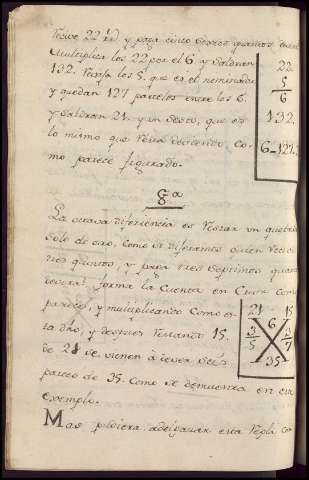 22 y paga cinco sesmos quantos
Multiplica los 22 por el 6 y Valdran
132. Resta los 5. que es el nominador
y quedan 127 partelos entre los 6.
y Valdran 21. y un Sesto, que es
lo mismo que Resta deciendo, co-
mo parece figurado.
22
5
6
132.
8ª
La octava diferiencia es Restar un quebrado
solo de otro, Como si dijeramos quien Recive
tres quintos, y paga tres Septimos quanto
devera? forma la Cuenta en Cruz como
parece, y multiplicando Como es-
ta dho, y despues Restando 15.
de 21 se vienen á dever seis
partes de 35. Como se demuestra en este
exemplo.
21 15
6
3 3
5 7
35
Mas pudiera adelgazar esta Regla